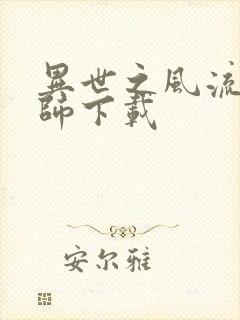 異世之風流
師下載
安尔雅